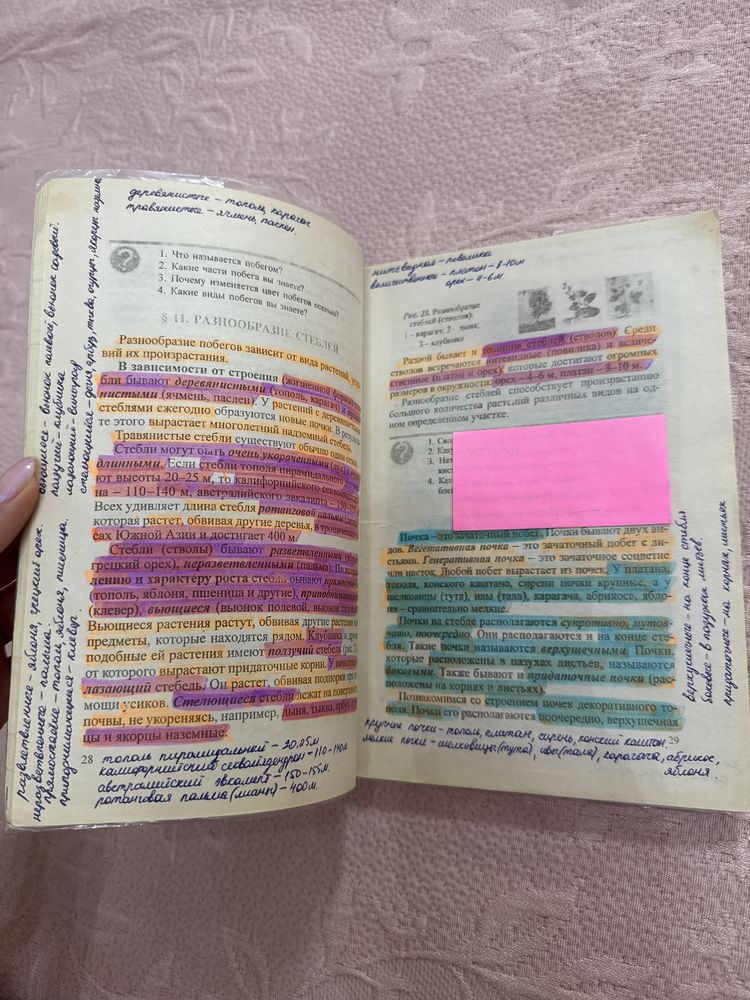 деревянистые – тополь, карагач
травянистые – ячмень, паслен.
вьющиеся – вьюнок полевой, вьюнок садовый.
ползучий – клубника
лазающий – виноград
стелющиеся – дыня, арбуз, тыква, огурцы, якорцы наземные
разветвленные – яблоня, грецкий орех.
неразветвленные – пальма.
прямостоячие – тополь, яблоня, пшеница.
приподнимающиеся – клевер.
1. Что называется побегом?
2. Какие части побега вы знаете?
3. Почему изменяется цвет побегов осенью?
4. Какие виды побегов вы знаете?
§ 11. РАЗНООБРАЗИЕ СТЕБЛЕЙ
Разнообразие побегов зависит от вида растений,
вий их произрастания.
В зависимости от строения (жизненной формы)
бли бывают деревянистыми (тополь, карагач) и
нистыми (ячмень, паслен). У растений с деревянистыми
стеблями ежегодно образуются новые почки. В результа-
те этого вырастает многолетний надземный стебель.
Травянистые стебли существуют обычно один сезон
Стебли могут быть очень укороченными
длинными. Если стебли тополя пирамидального
ют высоты 20–25 м, то калифорнийского
на – 110–140 м, австралийского эвкалипта –
Всех удивляет длина стебля ротанговой пальмы
которая растет, обвивая другие деревья, в тропических
сах Южной Азии и достигает 400 м.
Стебли (стволы) бывают разветвленными
грецкий орех), неразветвленными (пальма). По
лению и характеру роста стебли бывают
(тополь, яблоня, пшеница и другие),
(клевер), вьющиеся (вьюнок полевой, вьюнок
Вьющиеся растения растут, обвивая другие растения
предметы, которые находятся рядом. Клубника и
подобные ей растения имеют ползучий стебель
от которого вырастают придаточные корни. У
лазающий стебель. Он растет, обвивая подпорки при
мощи усиков. Стелющиеся стебли лежат на поверхности
почвы, не укореняясь, например, дыня, тыква,
цы и якорцы наземные.
28
тополь пирамидальный – 20,25м
калифорнийский секвойядендрон – 110–140м
австралийский эвкалипт – 150–155м.
ротанговая пальма (лианы) – 400м.
нитевидная – повилика
величественное – платан – 8–10м
орех – 4–6м
Рис. 23. Разнообразие
стеблей (стволов):
1 – карагач; 2 – дыня;
3 – клубника
2
Разной бывает и толщина стеблей (стволов). Среди
стволов встречаются нитевидные (повилика) и величе-
ственные (платан и орех), которые достигают огромных
размеров в окружности: орех – 4–6 м, платан – 8–10 м.
Разнообразие стеблей способствует произрастанию
большого количества растений различных видов на од-
ном определенном участке.
1.
2.
3.
4.
Почка – это зачаточный побег. Почки бывают двух ви-
дов. Вегетативная почка – это зачаточный побег с ли-
стьями. Генеративная почка – это зачаточное соцветие
или цветок. Любой побег вырастает из почек. У платана,
тополя, конского каштана, сирени почки крупные, а у
шелковицы (тута), ивы (тала), карагача, абрикоса, ябло-
ни – сравнительно мелкие.
Почки на стебле располагаются супротивно, мутов-
чато, поочередно. Они располагаются и на конце сте-
бля. Такие почки называются верхушечными. Почки,
которые расположены в пазухах листьев, называются
боковыми. Также бывают и придаточные почки (рас-
положены на корнях и листьях).
Познакомимся со строением почек декоративного то-
поля. Почки его располагаются поочередно, верхушечная
29
крупные почки – тополь, платан, сирень, конский каштан.
мелкие почки – шелковицы (тута), ивы (тала), карагача, абрикос,
яблоня.
верхушечное – на конце стебля
боковые – в пазухах листьев.
придаточные – на корнях, листьях